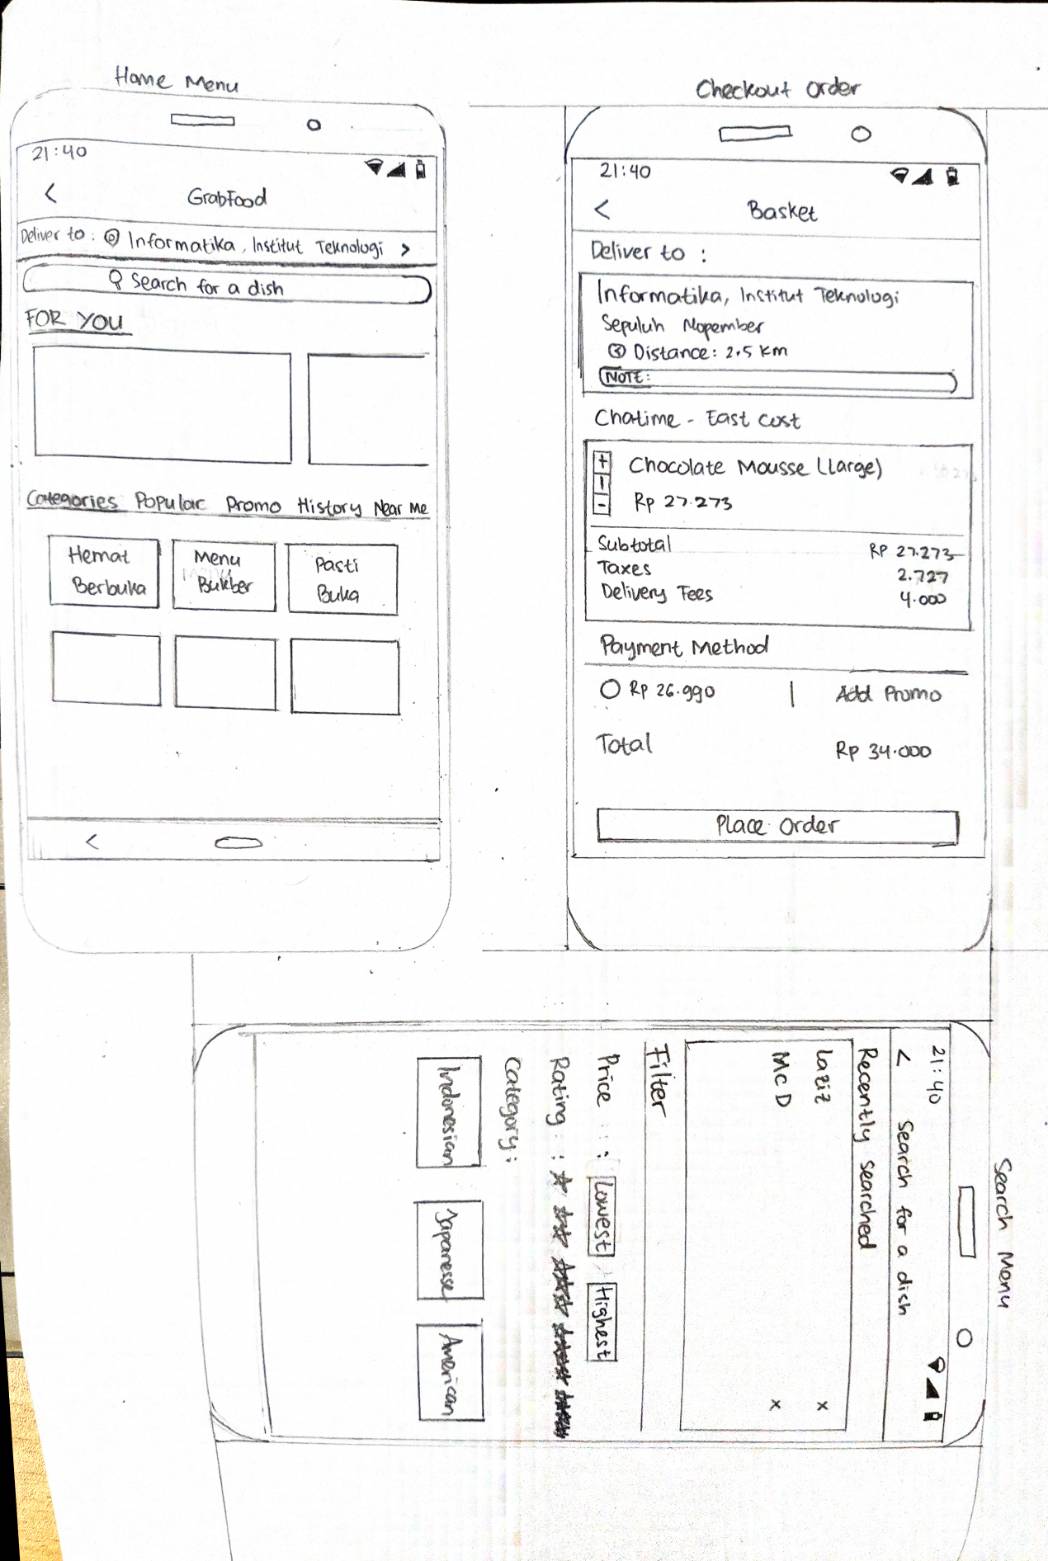 Home Menu
21:40
<
GrabFood
Deliver to: Informatika, Institut Teknologi >
Search for a dish
FOR YOU
Categories Popular Promo History Near Me
Hemat
Berbuka
Menu
Bukber
Pasti
Buka
<
Checkout Order
21:40
<
Basket
Deliver to :
Informatika, Institut Teknologi
Sepuluh Nopember
Distance: 2.5 km
NOTE:
Chatime - East Cost
+
1
-
Chocolate Mousse (Large)
Rp 27.273
Subtotal RP 27.273
Taxes 2.727
Delivery Fees 4.000
Payment Method
Rp 26.990 | Add Promo
Total Rp 34.000
Place Order
Search Menu
21:40
< Search for a dish
Recently searched
Laziz x
McD x
Filter
Price : Lowest Highest
Rating :
Category :
Indonesian
Japanesse
American